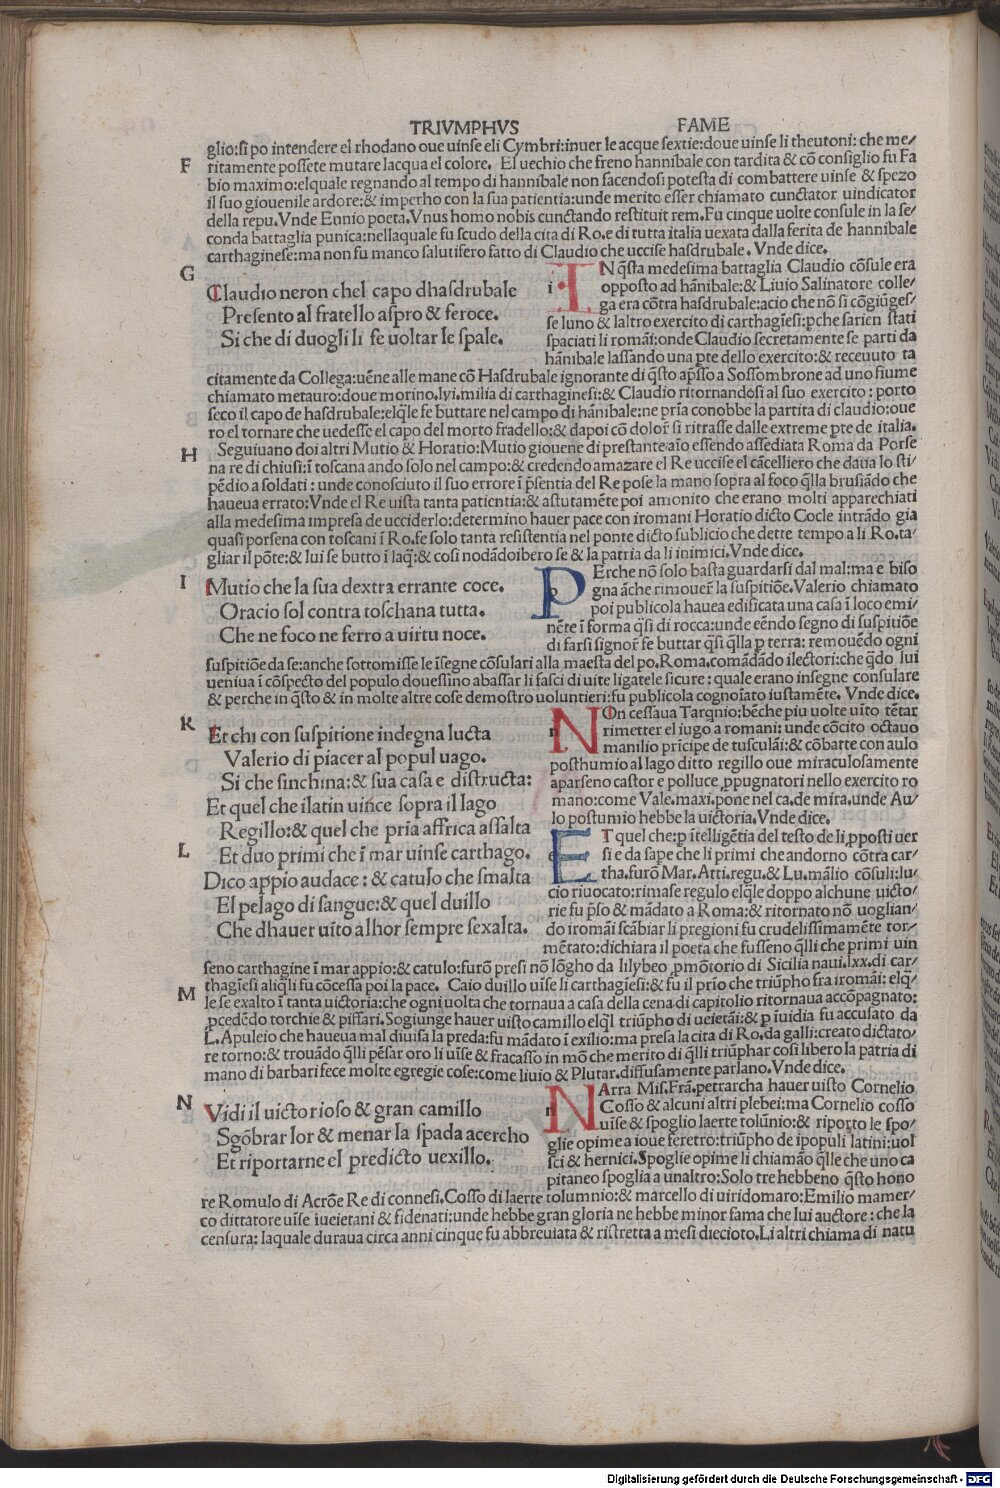 TRIVMPHVS FAME
glio:si po intendere el rhodano oue uinse eli Cymbri:inuer le acque sextie:doue uinse li theutoni: che me/
F ritamente possete mutare lacqua el colore. El uechio che freno hannibale con tardita & cõ consiglio fu Fa
bio maximo:elquale regnando al tempo di hannibale non facendosi potesta di combattere uinse & spezo
il suo giouenile ardore:& imperho con la sua patientia:unde merito esser chiamato cunctator uindicator
della repu.Vnde Ennio poeta.Vnus homo nobis cunctando restituit rem.Fu cinque uolte consule in la se/
conda battaglia punica:nellaquale fu scudo della cita di Ro.e di tutta italia uexata dalla ferita de hannibale
carthaginese:ma non fu manco salutifero fatto di Claudio che uccise hasdrubale . Vnde dice.
G
Claudio neron chel capo dhasdrubale
Presento al fratello aspro & feroce.
Si che di duogli li fe uoltar le spale.
i IN q̃sta medesima battaglia Claudio cõsule era
opposto ad hãnibale:& Liuio Salinatore colle/
ga era cõtra hasdrubale:acio che nõ si cõgiũges/
se luno & laltro exercito di carthagiẽsi:pche sarien stati
spaciati li romãi:onde Claudio secretamente se parti da
hãnibale lassando una pte dello exercito:& receuuto ta
citamente da Collega:uẽne alle mane cõ Hasdrubale ignorante di q̃sto ap̃sso a Sossombrone ad uno fiume
chiamato metauro:doue morino.lvi.milia di carthaginesi:& Claudio ritornandosi al suo exercito : porto
seco il capo de hasdrubale:elq̃le fe buttare nel campo di hãnibale:ne pr̃ia conobbe la partita di claudio:oue
ro el tornare che uedesse el capo del morto fradello:& dapoi cõ dolor̃ si ritrasse dalle extreme pte de italia.
H Seguiuano doi altri Mutio & Horatio:Mutio giouene di prestante aĩo essendo assediata Roma da Porse
na re di chiusi:ĩ toscana ando solo nel campo:& credendo amazare el Re uccise el cãcelliero che daua lo sti/
pẽdio a soldati : unde conosciuto il suo errore ĩ p̃sentia del Re pose la mano sopra al foco q̃lla brusiãdo che
haueua errato:Vnde el Re uista tanta patientia:& astutamẽte poi amonito che erano molti apparechiati
alla medesima impresa de ucciderlo:determino hauer pace con iromani Horatio dicto Cocle intrãdo gia
quasi porsena con toscani ĩ Ro.fe solo tanta resistentia nel ponte dicto sublicio che dette tempo a li Ro.ta/
gliar il põte:& lui se butto ĩ laq̃:& cosi nodãdoibero se & la patria da li inimici.Vnde dice.
I Mutio che la sua dextra errante coce.
Oracio sol contra toschana tutta.
Che ne foco ne ferro a uirtu noce.
p PErche nõ solo basta guardarsi dal mal:ma e biso
gna ãche rimouer̃ la suspitiõe.Valerio chiamato
poi publicola hauea edificata una casa ĩ loco emi/
nẽte ĩ forma q̃si di rocca:unde eẽndo segno di suspitiõe
di farsi signor̃ fe buttar q̃si q̃lla p terra: remouẽdo ogni
suspitiõe da se:anche sottomisse le ĩsegne cõsulari alla maesta del po.Roma.comãdãdo ilectori:che q̃do lui
ueniua ĩ cõspecto del populo douessino abassar li fasci di uite ligatele sicure : quale erano insegne consulare
& perche in q̃sto & in molte altre cose demostro uoluntieri:fu publicola cognoĩato iustamẽte. Vnde dice.
K Et chi con suspitione indegna lucta
Valerio di piacer al popul uago.
Si che sinchina:& sua casa e distructa:
Et quel che ilatin uince sopra il lago
Regillo:& quel che pria affrica assalta
L Et duo primi che ĩ mar uinse carthago.
Dico appio audace : & catulo che smalta
El pelago di sangue:& quel duillo
Che dhauer uĩto alhor sempre sexalta.
n NOn cessaua Tarqnio:bẽche piu uolte uĩto tẽtar
rimetter el iugo a romani: unde cõcito octauo
manilio prĩcipe de tusculãi:& cõbatte con aulo
posthumio al lago ditto regillo oue miraculosamente
aparseno castor e polluce,ppugnatori nello exercito ro
mano:come Vale.maxi.pone nel ca.de mira.unde Au/
lo postumio hebbe la uictoria.Vnde dice.
e ET quel che:p ĩtelligẽtia del testo de li,pposti uer
si e da sape che li primi che andorno cõtra car/
tha.furõ Mar. Atti.regu.& Lu.mãlio cõsuli:lu/
cio riuocato:rimase regulo elq̃le doppo alchune uicto/
rie fu p̃so & mãdato a Roma:& ritornato nõ uoglian/
do iromãi scãbiar li pregioni fu crudelissimamẽte tor/
mẽtato:dichiara il poeta che fusseno q̃lli che primi uin
seno carthagine ĩ mar appio:& catulo:furõ presi nõ lõgho da lilybeo ,pmõtorio di Sicilia naui.lxx.di car/
thagiẽsi aliq̃li fu cõcessa poi la pace. Caio duillo uĩse li carthagiẽsi:& fu il prio che triũpho fra iromãi: elq̃/
M le se exalto ĩ tanta uictoria:che ogni uolta che tornaua a casa della cena di capitolio ritornaua accõpagnato:
,pcedẽdo torchie & piffari.Sogiunge hauer uisto camillo elq̃l triũpho di ueietãi:& p ĩuidia fu accusato da
L.Apuleio che haueua mal diuisa la preda:fu mãdato ĩ exilio:ma presa la cita di Ro.da galli:creato dictato/
re torno:& trouãdo q̃lli pẽsar oro li uĩse & fracasso in mõ che merito di q̃lli triũphar cosi libero la patria di
mano di barbari fece molte egregie cose:come liuio & Plutar.diffusamente parlano.Vnde dice.
N Vidi il uictorioso & gran camillo
Sgõbrar lor & menar la spada acercho
Et riportarne el predicto uexillo.
n NArra Mis.Frã.petrarcha hauer uisto Cornelio
Cosso & alcuni altri plebei:ma Cornelio cosso
uĩse & spoglio laerte tolũnio:& riporto le spo/
glie opime a ioue feretro:triũpho de ipopuli latini:uol
sci & hernici.Spoglie opime li chiamão q̃lle che uno ca
pitaneo spoglia a unaltro:Solo tre hebbeno q̃sto hono
re Romulo di Acrõe Re di connesi.Cosso di laerte tolumnio:& marcello di uiridomaro:Emilio mamer/
co dittatore uĩse iueietani & fidenati:unde hebbe gran gloria ne hebbe minor fama che lui auctore : che la
censura: laquale duraua circa anni cinque fu abbreuiata & ristretta a mesi diecioto.Li altri chiama di natu
Digitalisierung gefördert durch die Deutsche Forschungsgemeinschaft - DFG